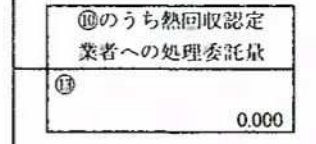 ⑩のうち熱回収認定
業者への処理委託量
⑬
0.000